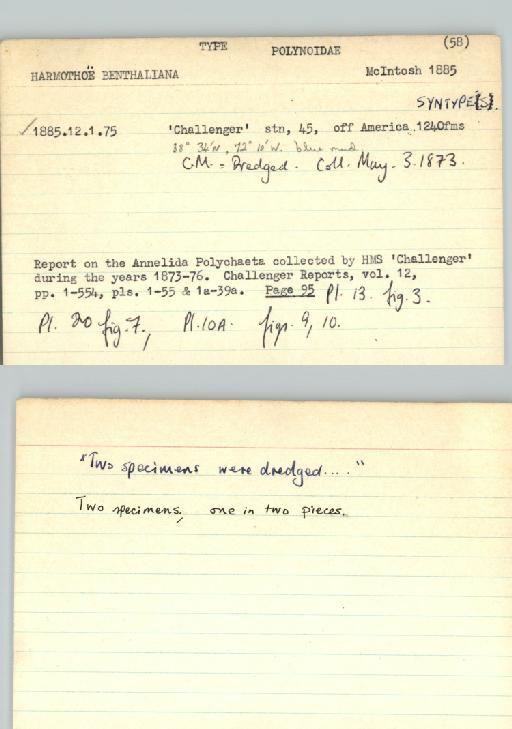 TYPE POLYNOIDAE (58)
HARMOTHOË BENTHALIANA McIntosh 1885
SYNTYPE(S).
✓1885.12.1.75 'Challenger' stn, 45, off America 1240fms
38° 34'N, 72° 10'W. blue mud
C.M. = Dredged. Coll. May. 3. 1873.
Report on the Annelida Polychaeta collected by HMS 'Challenger'
during the years 1873-76. Challenger Reports, vol. 12,
pp. 1-554, pls. 1-55 & 1a-39a. Page 95 Pl. 13. fig. 3.
Pl. 20 fig. 7., Pl. 10A. figs. 9, 10.
"Two specimens were dredged...."
Two specimens, one in two pieces.